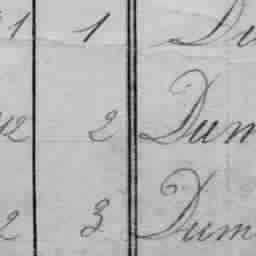 1 1 Du
12 2 Dum
2 3 Dum